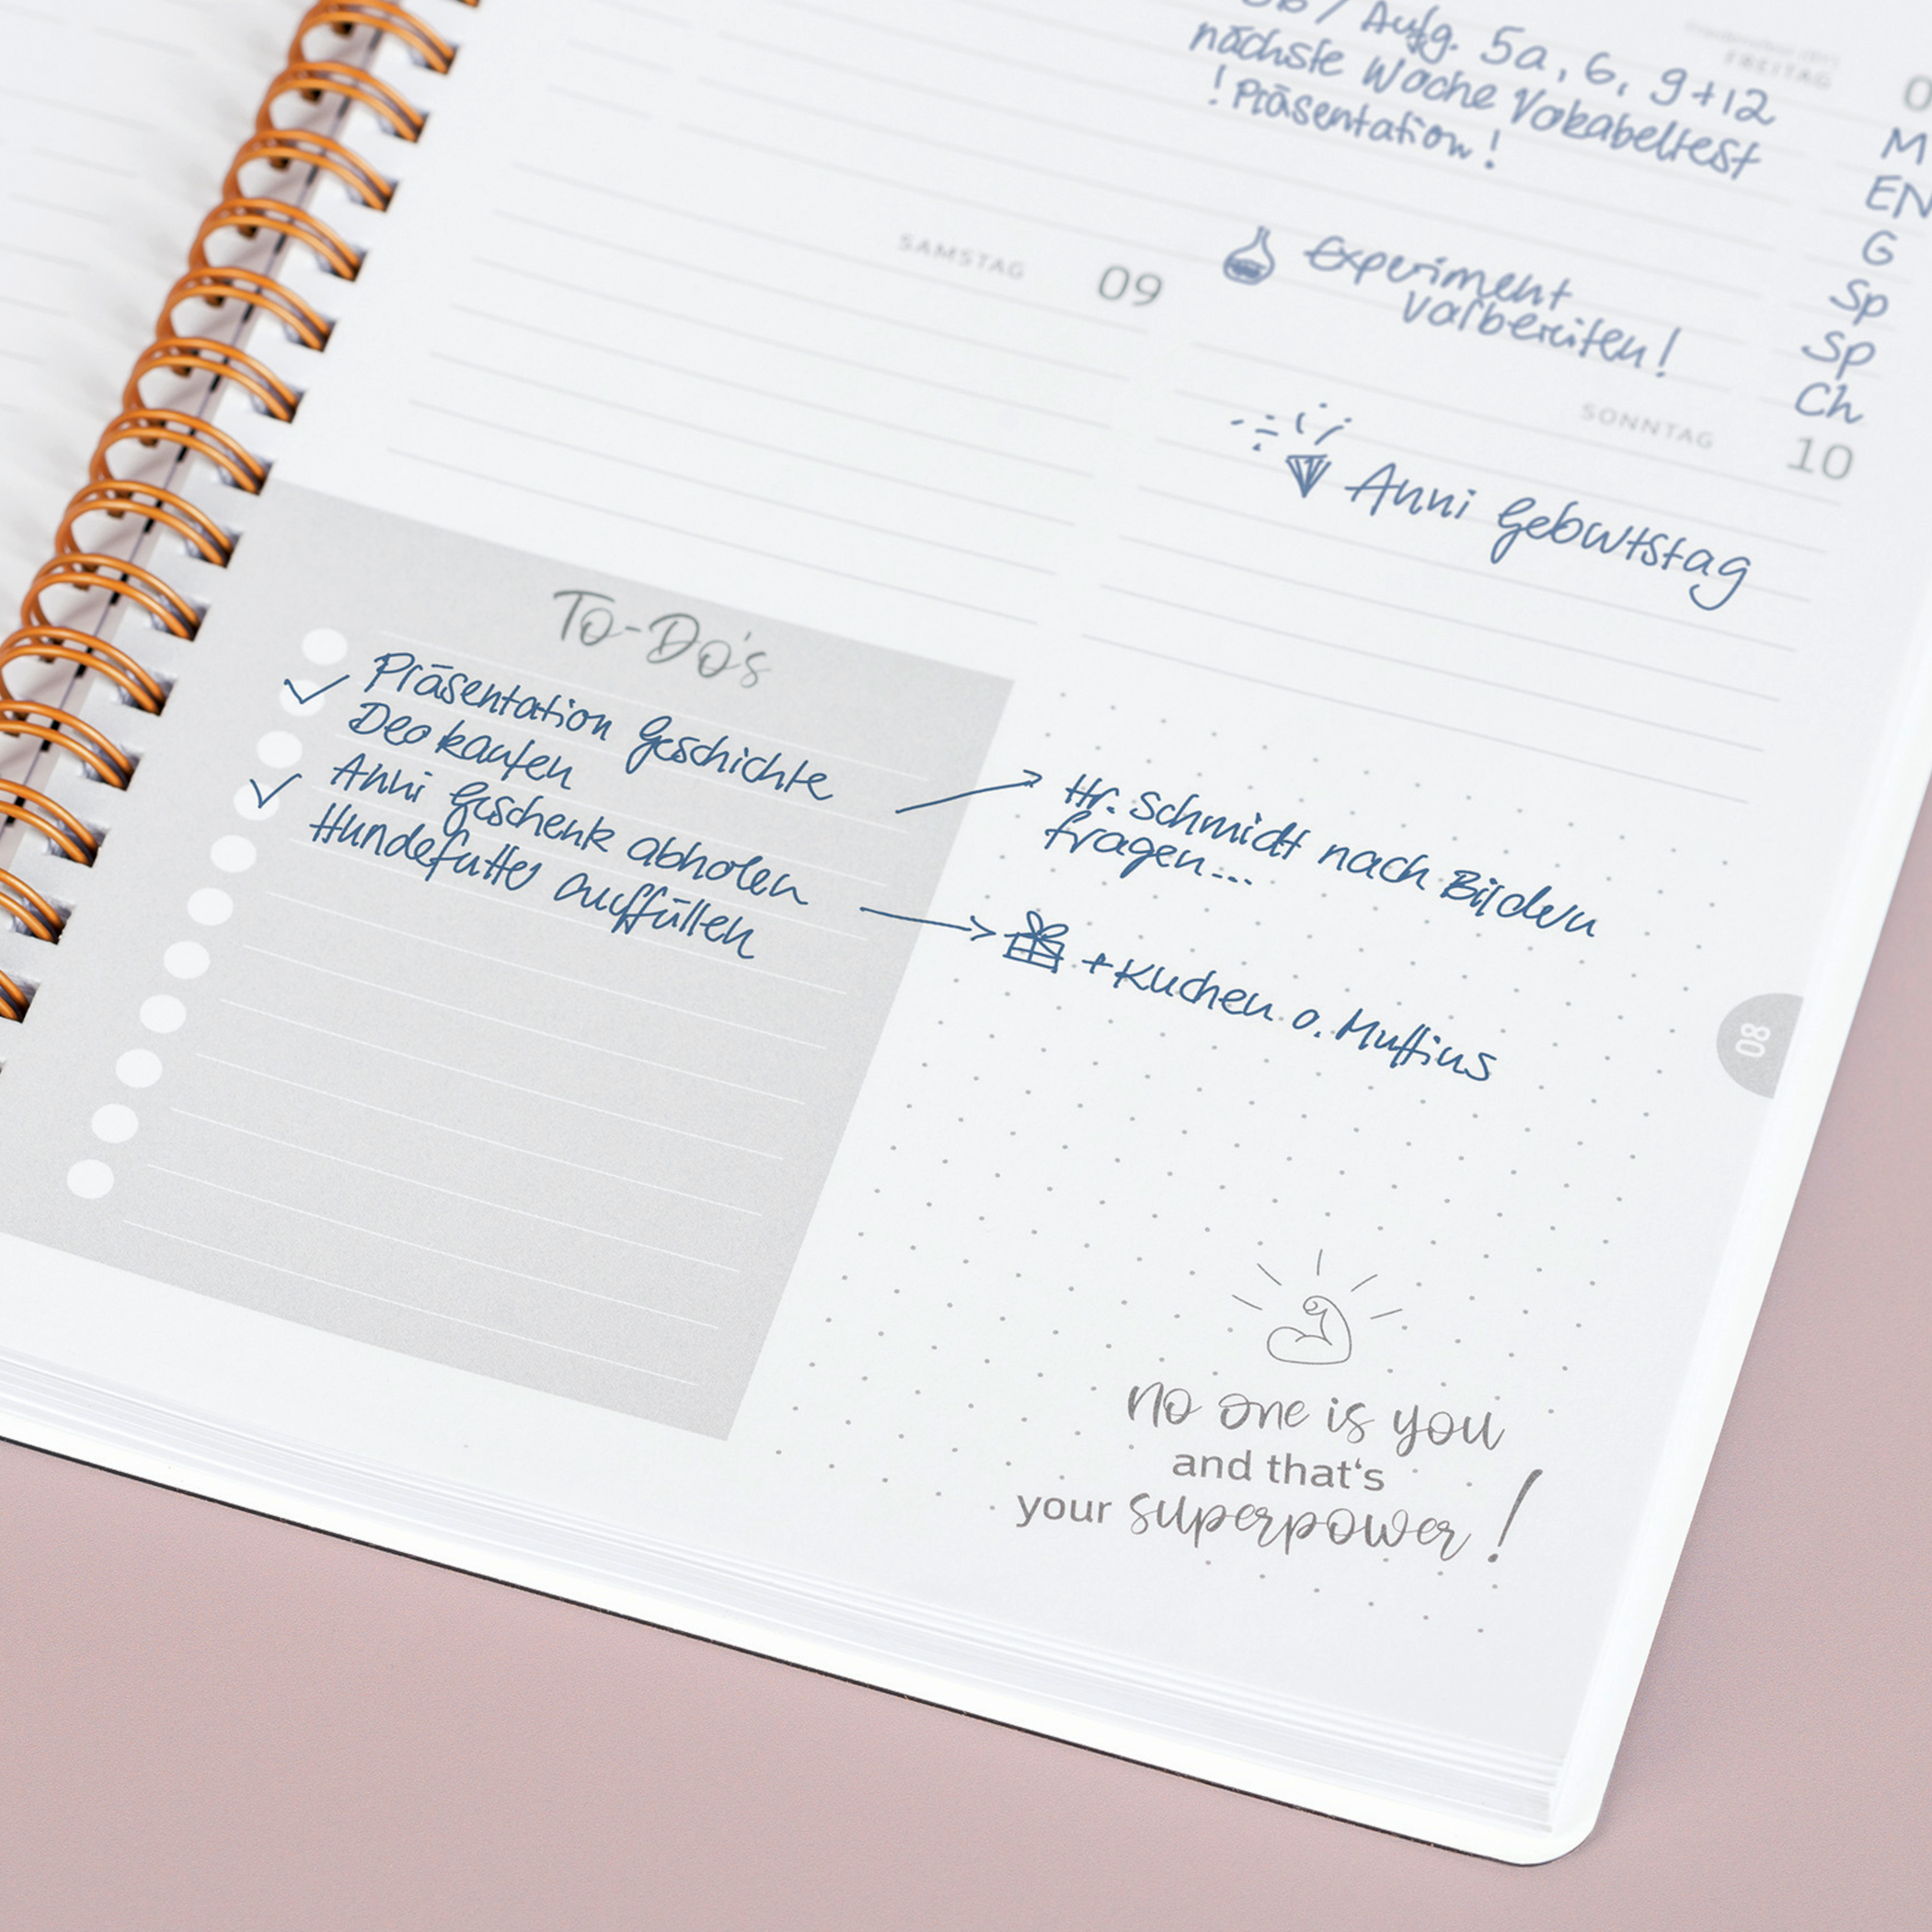 Aufg. 5a, 6, 9+12
nächste Woche Vokabeltest
! Präsentation!
FREITAG
M
EN
G
Sp
Sp
Ch
SAMSTAG 09
Experiment
vorbereiten!
SONNTAG 10
Anni Geburtstag
To-Do's
Präsentation Geschichte
Deo kaufen
Anni Geschenk abholen
Hundefutter auffüllen
Hr. Schmidt nach Bildern
fragen...
+ Kuchen o. Muffins
08
no one is you
and that's
your superpower!